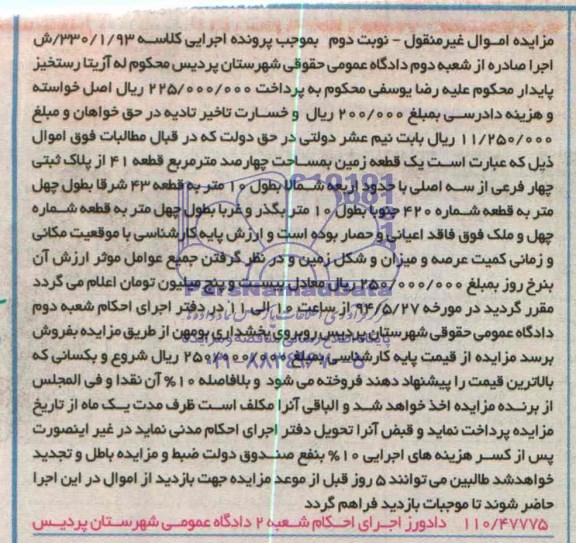 مزایده اموال غیرمنقول - نوبت دوم بموجب پرونده اجرایی کلاسه ۳۳۰/۱/۹۳/ش
اجرا صادره از شعبه دوم دادگاه عمومی حقوقی شهرستان پردیس محکوم له آزیتا رستخیز
پایدار محکوم علیه رضا یوسفی محکوم به پرداخت ۲۲۵/۰۰۰/۰۰۰ ریال اصل خواسته
و هزینه دادرسی بمبلغ ۲۰۰/۰۰۰ ریال و خسارت تاخیر تادیه در حق خواهان و مبلغ
۱۱/۲۵۰/۰۰۰ ریال بابت نیم عشر دولتی در حق دولت که در قبال مطالبات فوق اموال
ذیل که عبارت است یک قطعه زمین بمساحت چهارصد مترمربع قطعه ۴۱ از پلاک ثبتی
چهار فرعی از سه اصلی با حدود اربعه شمالا بطول ۱۰ متر به قطعه ۴۳ شرقا بطول چهل
متر به قطعه شماره ۴۲۰ جنوبا بطول ۱۰ متر بگذر و غربا بطول چهل متر به قطعه شماره
چهل و ملک فوق فاقد اعیانی و حصار بوده است و ارزش پایه کارشناسی با موقعیت مکانی
و زمانی کمیت عرصه و میزان و شکل زمین و در نظر گرفتن جمیع عوامل موثر ارزش آن
بنرخ روز بمبلغ ۲۵۰/۰۰۰/۰۰۰ ریال معادل بیست و پنج میلیون تومان اعلام می گردد
مقرر گردید در مورخه ۹۴/۵/۲۷ از ساعت ۱۰ الی ۱۱ در دفتر اجرای احکام شعبه دوم
دادگاه عمومی حقوقی شهرستان پردیس روبروی بخشداری بومهن از طریق مزایده بفروش
برسد مزایده از قیمت پایه کارشناسی بمبلغ ۲۵۰/۰۰۰/۰۰۰ ریال شروع و بکسانی که
بالاترین قیمت را پیشنهاد دهند فروخته می شود و بلافاصله ۱۰% آن نقدا و فی المجلس
از برنده مزایده اخذ خواهد شد و الباقی آنرا مکلف است ظرف مدت یک ماه از تاریخ
مزایده پرداخت نماید و قبض آنرا تحویل دفتر اجرای احکام مدنی نماید در غیر اینصورت
پس از کسر هزینه های اجرایی ۱۰% بنفع صندوق دولت ضبط و مزایده باطل و تجدید
خواهدشد طالبین می توانند ۵ روز قبل از موعد مزایده جهت بازدید از اموال در این اجرا
حاضر شوند تا موجبات بازدید فراهم گردد
۱۱۰/۴۷۷۷۵ دادورز اجرای احکام شعبه ۲ دادگاه عمومی شهرستان پردیس
ParsNamadData